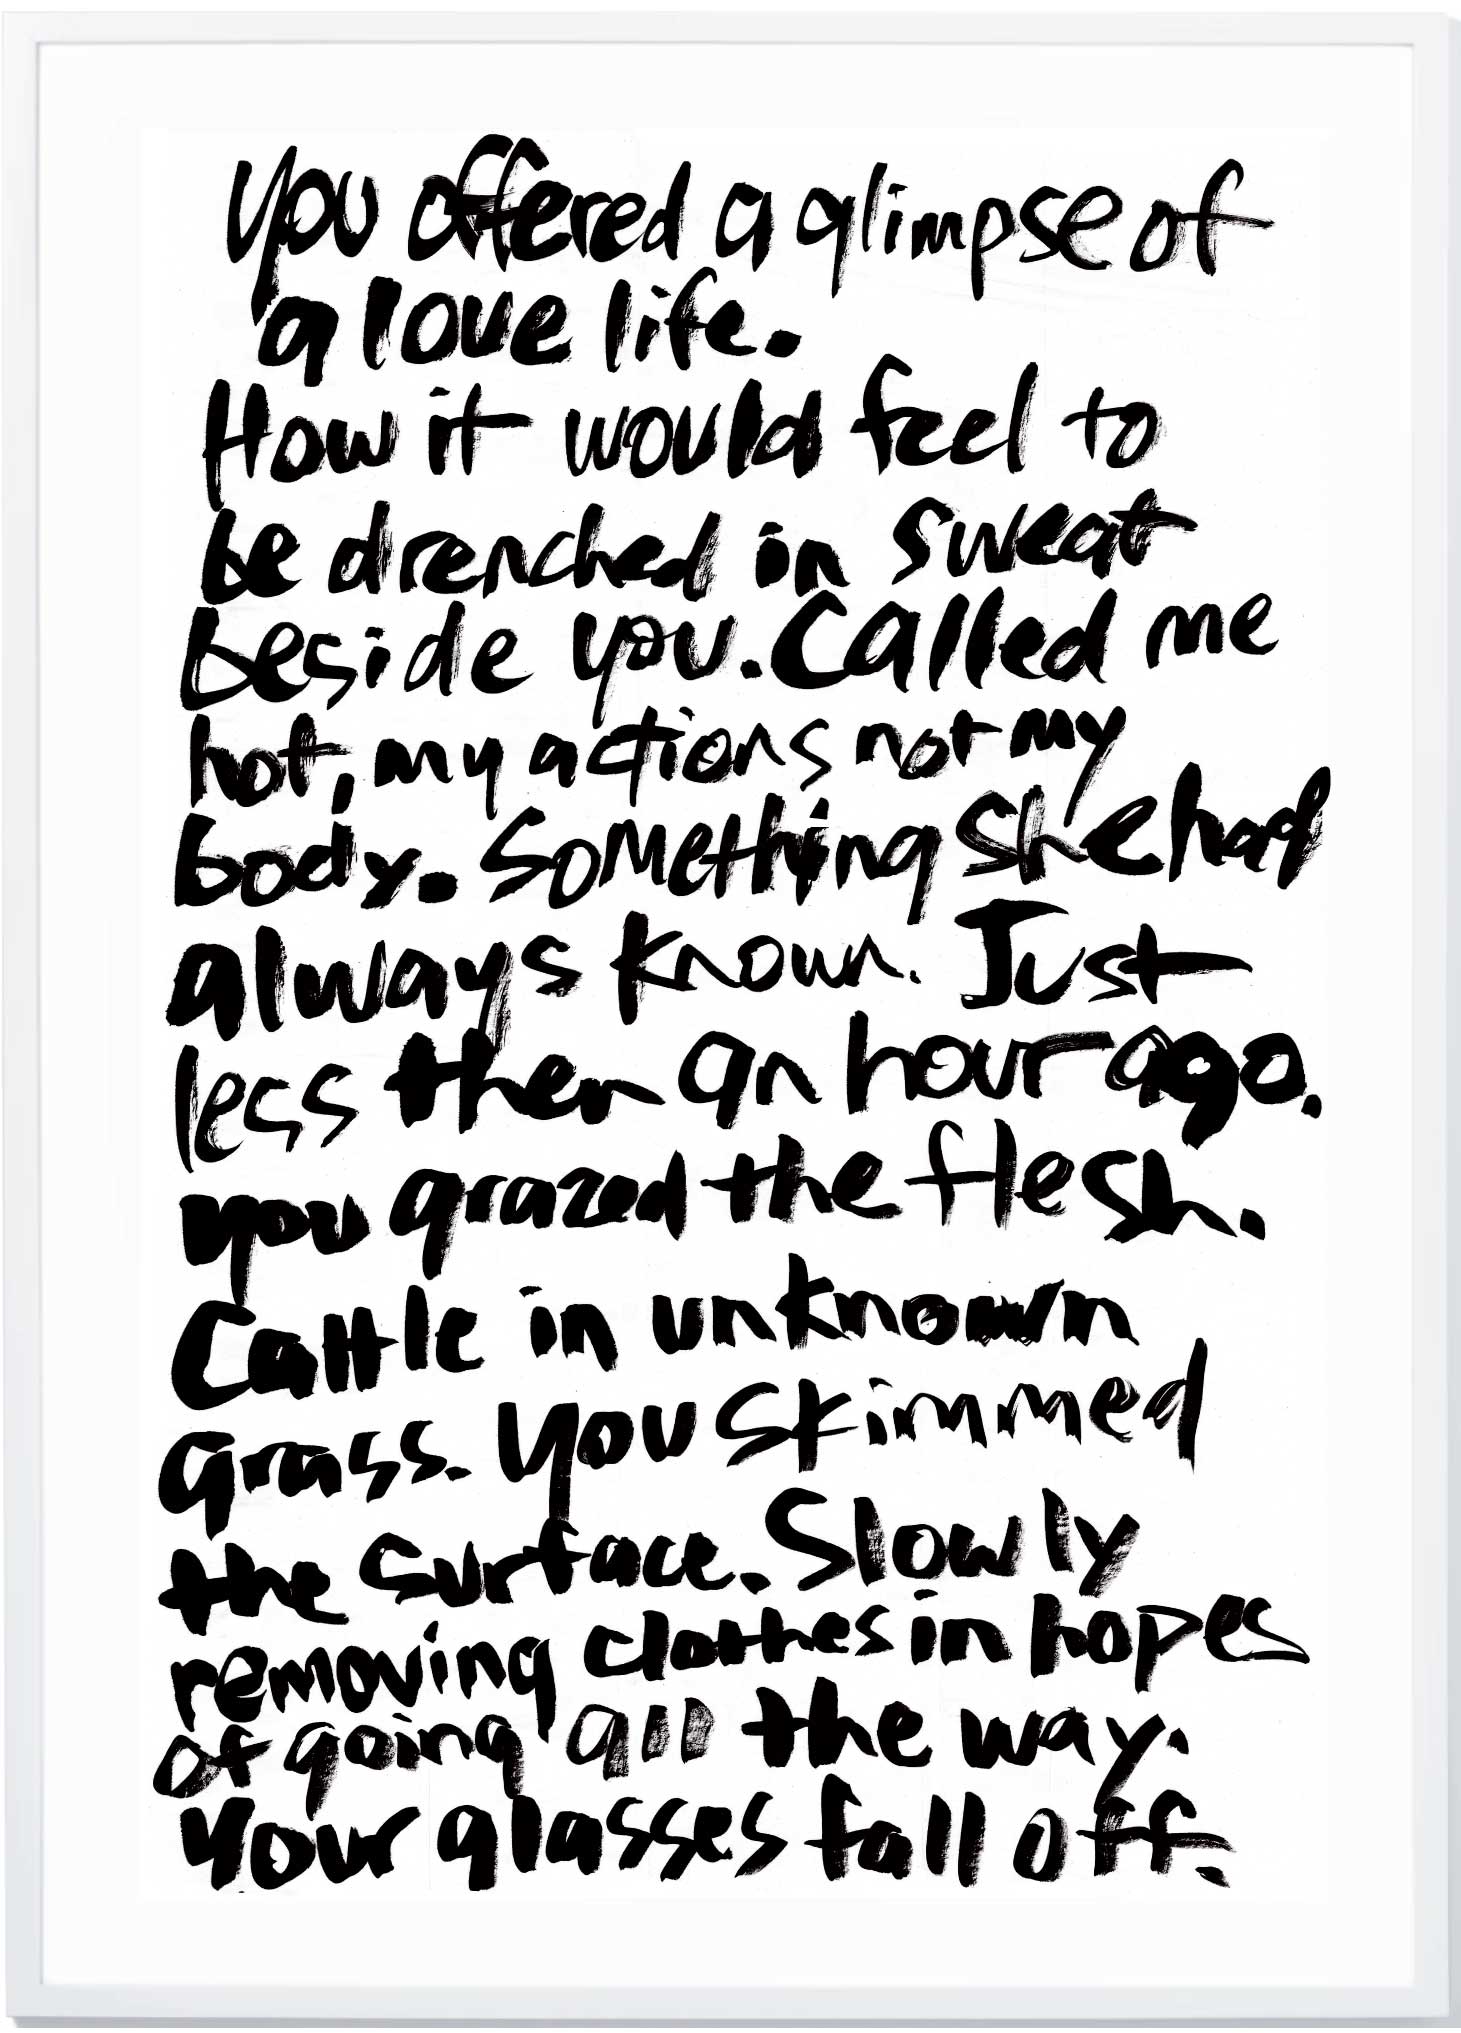 you offered a glimpse of
a love life.
How it would feel to
be drenched in sweat
beside you. Called me
hot, my actions not my
body. Something She had
always known. Just
less then an hour ago.
you grazed the flesh.
Cattle in unknown
grass. you skimmed
the surface. Slowly
removing clothes in hopes
of going all the way.
Your glasses fall off.